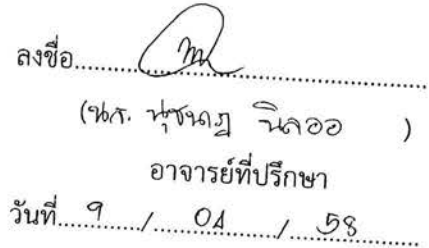 ลงชื่อ........................................
(นส. นุชนาฎ นิลออ )
อาจารย์ที่ปรึกษา
วันที่ 9 / 04 / 58